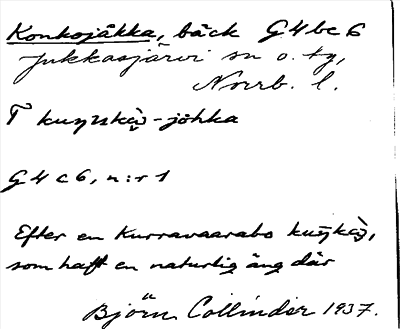 Konkojåkka, bäck G4bc6
Jukkasjärvi sn o. tg,
Norrb. l.
T kuŋskàv̥-jåhka
G4c6, n:r 1
Efter en Kurravaarabo
som haft en naturlig äng där
Björn Collinder 1937.